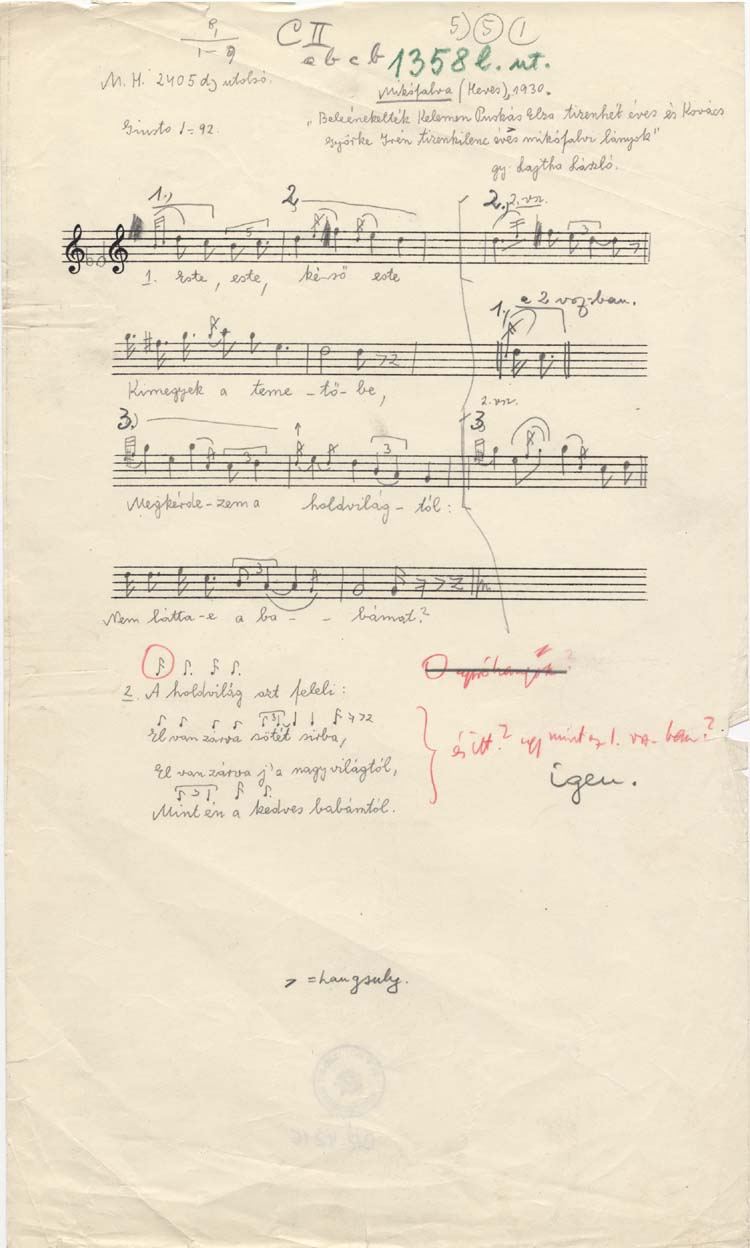 8, C II 5) 5 1
1–9 a b c b 1358 l. ut.
M. H. 2405 d) utolsó.
Mikófalva (Heves), 1930.
Giusto ♩= 92.
"Beleénekelték Kelemen Puskás Elza tizenhét éves és Kovács
Györke Irén tizenkilenc éves mikófalvi lányok"
gy. Lajtha László.
1., 2, 2., 2. vsz.
5 3
1. Este, este, késő este
1., a 2 vsz-ban.
Kimegyek a teme-tő-be,
2. vsz.
3.) 3.
3 3
Megkérde-zem a holdvilág-tól:
3
Nem látta-e a ba - - bámat?
2. A holdvilág azt feleli:
3
El van zárva sötét sirba,
és itt? úgy mint az 1. vsz-ban?
El van zárva j'a nagy világtól,
igen.
3
Mint én a kedves babámtól.
> = hangsuly.